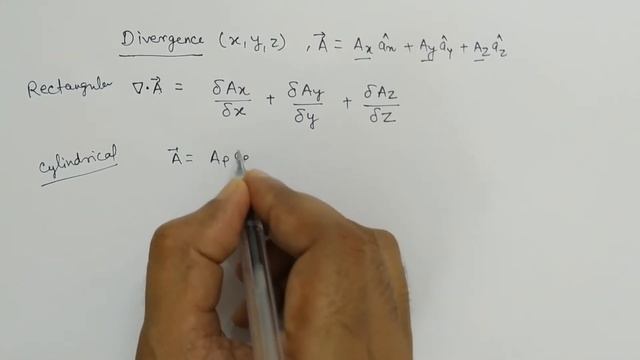 Divergence (x,y,z) , A⃗ = Ax âx + Ay ây + Az âz
Rectangular ∇·A⃗ = δAx/δx + δAy/δy + δAz/δz
Cylindrical A⃗ = Aρ